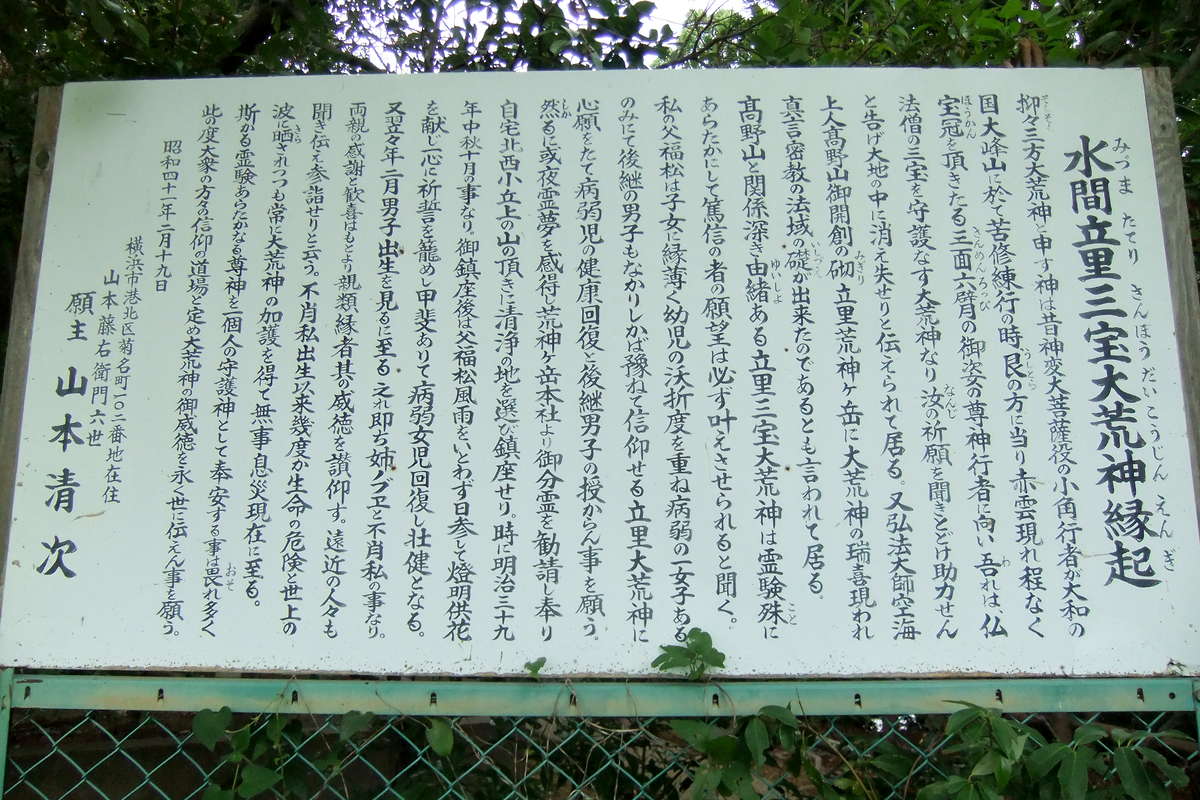 水間立里三宝大荒神縁起
みづま たてり さんぽうだいこうじん えんぎ
抑々三方大荒神と申す神は昔神変大菩薩役の小角行者が大和の
国大峰山に於て苦修練行の時、艮の方に当り赤雲現れ程なく
宝冠を頂きたる三面六臂の御姿の尊神行者に向い吾れは、仏
法僧の三宝を守護なす大荒神なり汝の祈願を聞きとどけ助力せん
と告げ大地の中に消え失せりと伝えられて居る。又弘法大師空海
上人高野山御開創の砌 立里荒神ヶ岳に大荒神の瑞喜現われ
真言密教の法域の礎が出来たのであるとも言われて居る。
高野山と関係深き由緒ある立里三宝大荒神は霊験殊に
あらたかにして篤信の者の願望は必ず叶えさせられると聞く。
私の父福松は子女に縁薄く幼児の沃折度を重ね病弱の一女子ある
のみにて後継の男子もなかりしかば豫ねて信仰せる立里大荒神に
心願をたて病弱児の健康回復と後継男子の授からん事を願う
然るに或夜霊夢を感得し荒神ヶ岳本社より御分霊を勧請し奉り
自宅北西小立上の山の頂きに清浄の地を選び鎮座せり。時に明治三十九
年中秋十月の事なり。御鎮座後は父福松風雨をいとわず日参して燈明供花
を献じ一心に祈誓を籠めし甲斐ありて病弱女児回復し壮健となる。
又翌々年二月男子出生を見るに至る 之れ即ち姉ノブヱと不肖私の事なり。
両親の感謝と歓喜はもとより親類縁者其の威徳を讃仰す。遠近の人々も
聞き伝え参詣せりと云う。不肖私出生以来幾度か生命の危険と世上の
波に晒されつつも常に大荒神の加護を得て無事息災現在に至る。
斯かる霊験あらたかなる尊神を一個人の守護神として奉安する事は畏れ多く
此の度大衆の方々の信仰の道場と定め大荒神の御威徳を永く世に伝えん事を願う。
昭和四十一年二月十九日
横浜市港北区菊名町一〇二番地在住
山本藤右衛門六世
願主 山本清次